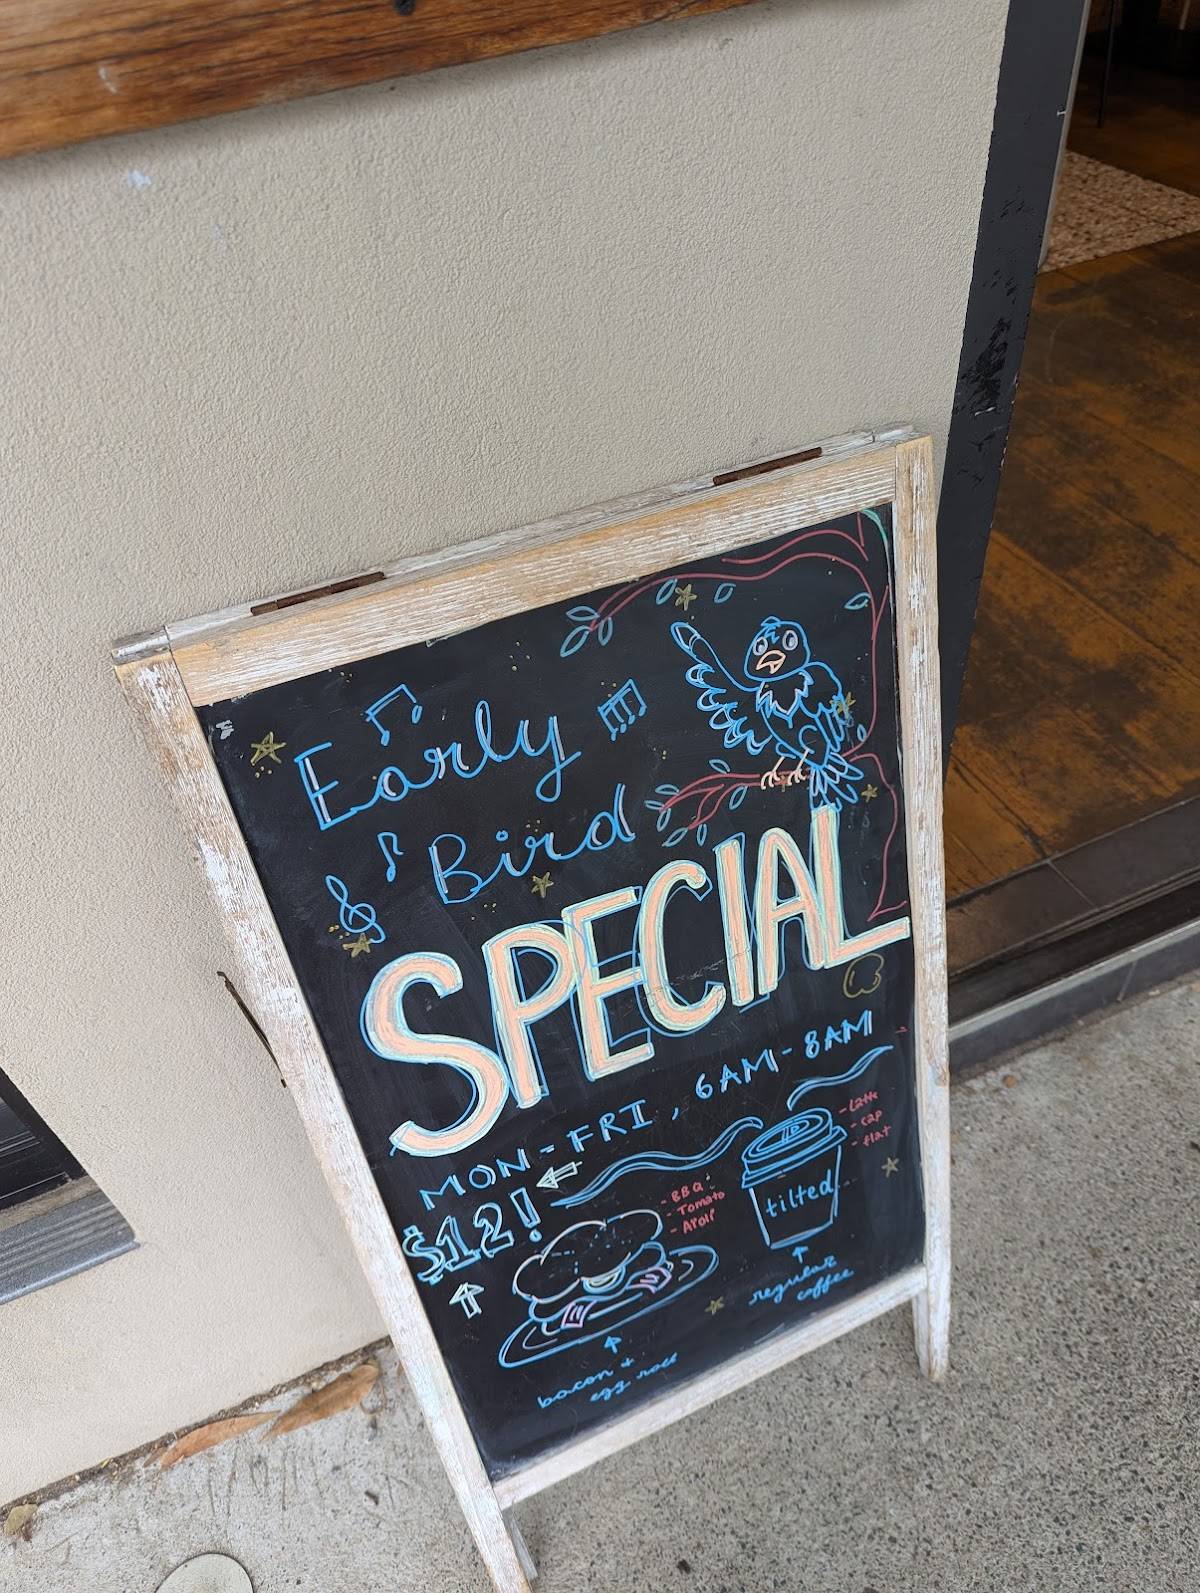 Early
Bird
SPECIAL
MON-FRI, 6AM-8AM
$12!
- BBQ
- Tomato
- Aioli
- Latte
- cap
- flat
tilted
regular
coffee
bacon +
egg roll